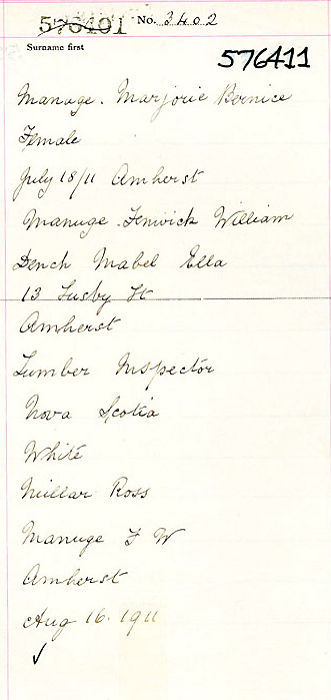 576401 No. 3402
Surname first
576411
Manuge. Marjorie Bernice
Female
July 18/11 Amherst
Manuge. Fenwick William
Dench Mabel Ella
13 Lusby St
Amherst
Lumber Inspector
Nova Scotia
White
Millar Ross
Manuge F W
Amherst
Aug 16. 1911
✓